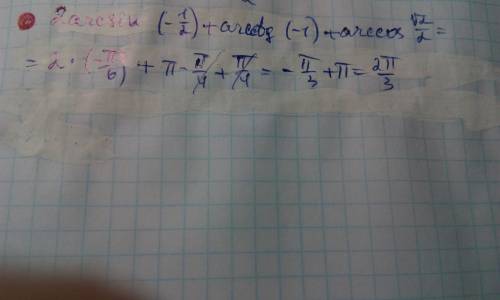 2 arcsin (-1/2) + arcctg (-1) + arccos √2/2 =
= 2 · (-π/6) + π - π/4 + π/4 = -π/3 + π = 2π/3